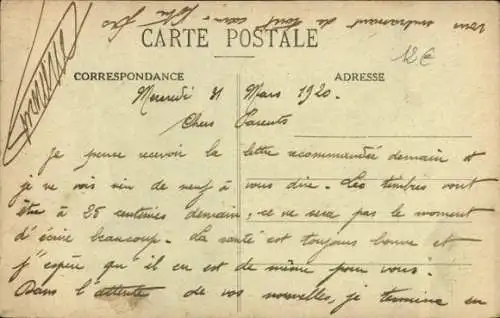 CARTE POSTALE
12€
CORRESPONDANCE
ADRESSE
Mercredi 31 Mars 1920.
Chers Parents
Je pense recevoir la lettre recommandée demain et
je ne vois rien de neuf à vous dire. Les timbres vont
être à 25 centimes demain, ce ne sera pas le moment
d'écrire beaucoup. La santé est toujours bonne et
j'espère qu'il en est de même pour vous.
Dans l'attente de vos nouvelles, je termine en
vous embrassant de tout cœur